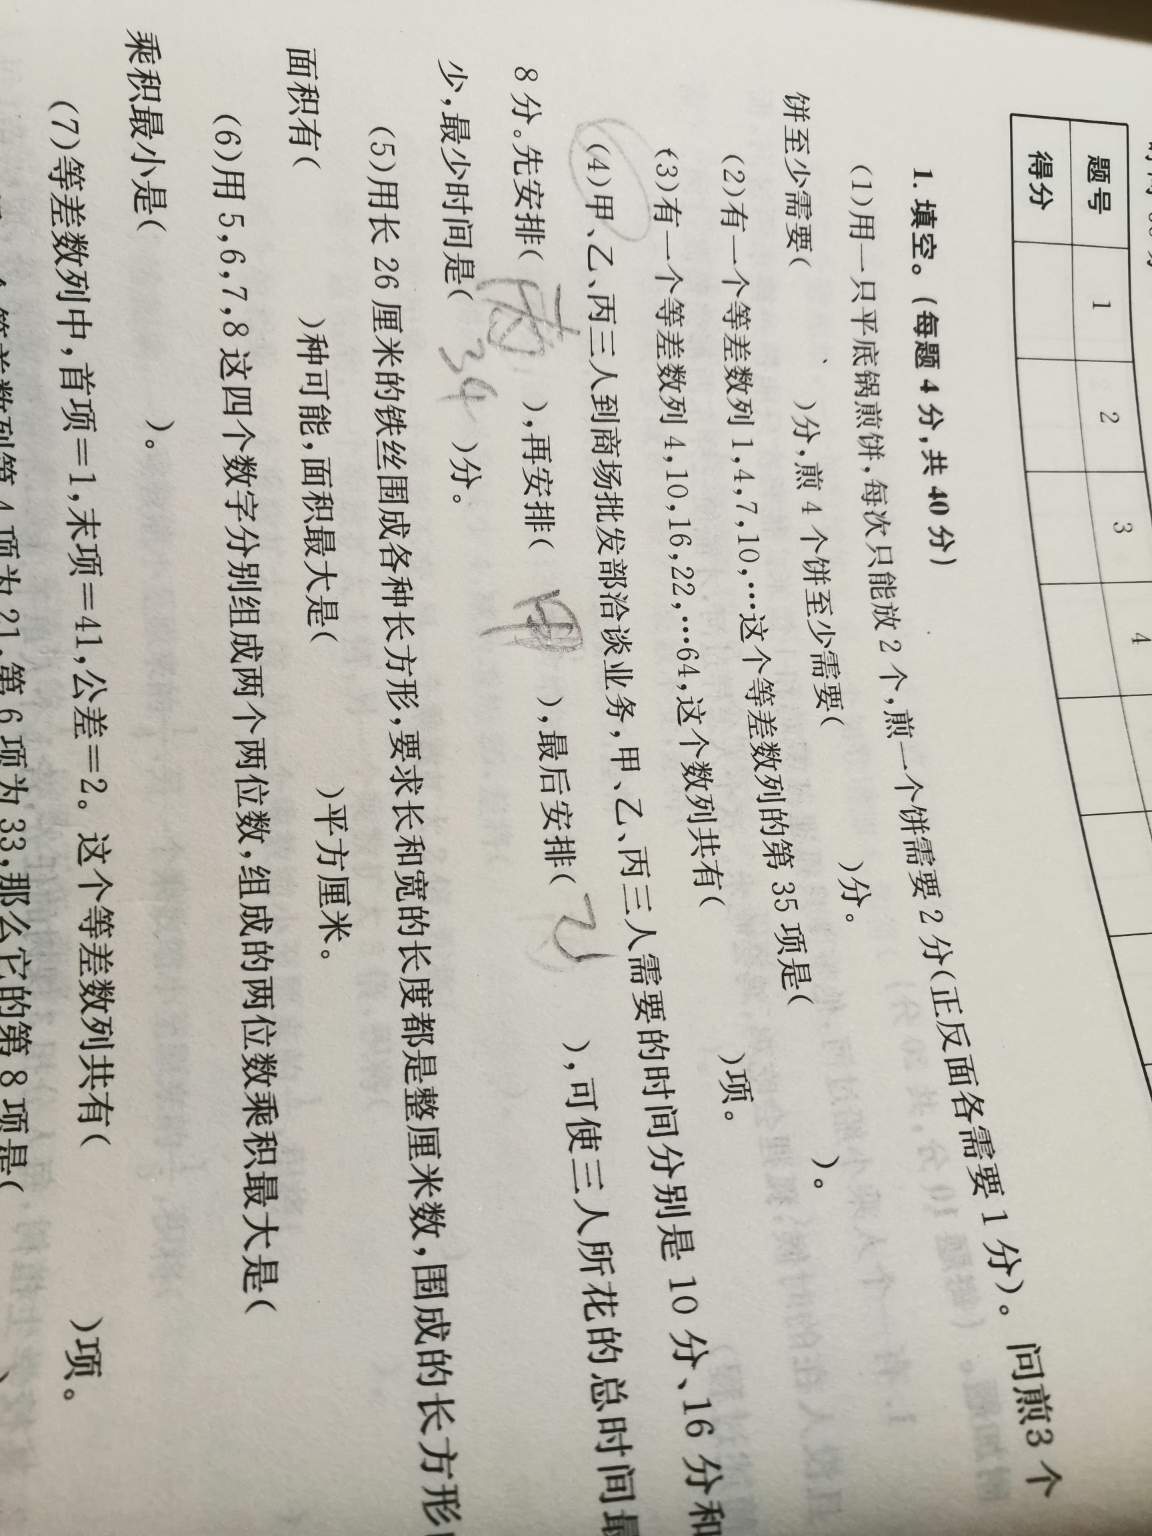 题号 1 2 3 4
得分
1. 填空。(每题 4 分,共 40 分)
(1)用一只平底锅煎饼,每次只能放 2 个,煎一个饼需要 2 分(正反面各需要 1 分)。问煎3 个
饼至少需要( )分,煎 4 个饼至少需要( )分。
(2)有一个等差数列 1,4,7,10,…这个等差数列的第 35 项是( )。
(3)有一个等差数列 4,10,16,22,…64,这个数列共有( )项。
(4)甲、乙、丙三人到商场批发部洽谈业务,甲、乙、丙三人需要的时间分别是 10 分、16 分和
8 分。先安排( 丙 ),再安排( 甲 ),最后安排( 乙 ),可使三人所花的总时间最
少,最少时间是( 34 )分。
(5)用长 26 厘米的铁丝围成各种长方形,要求长和宽的长度都是整厘米数,围成的长方形
面积有( )种可能,面积最大是( )平方厘米。
(6)用 5,6,7,8 这四个数字分别组成两个两位数,组成的两位数乘积最大是(
乘积最小是( )。
(7)等差数列中,首项=1,末项=41,公差=2。这个等差数列共有( )项。
等差数列第 4 项为 21,第 6 项为 33,那么它的第 8 项是(